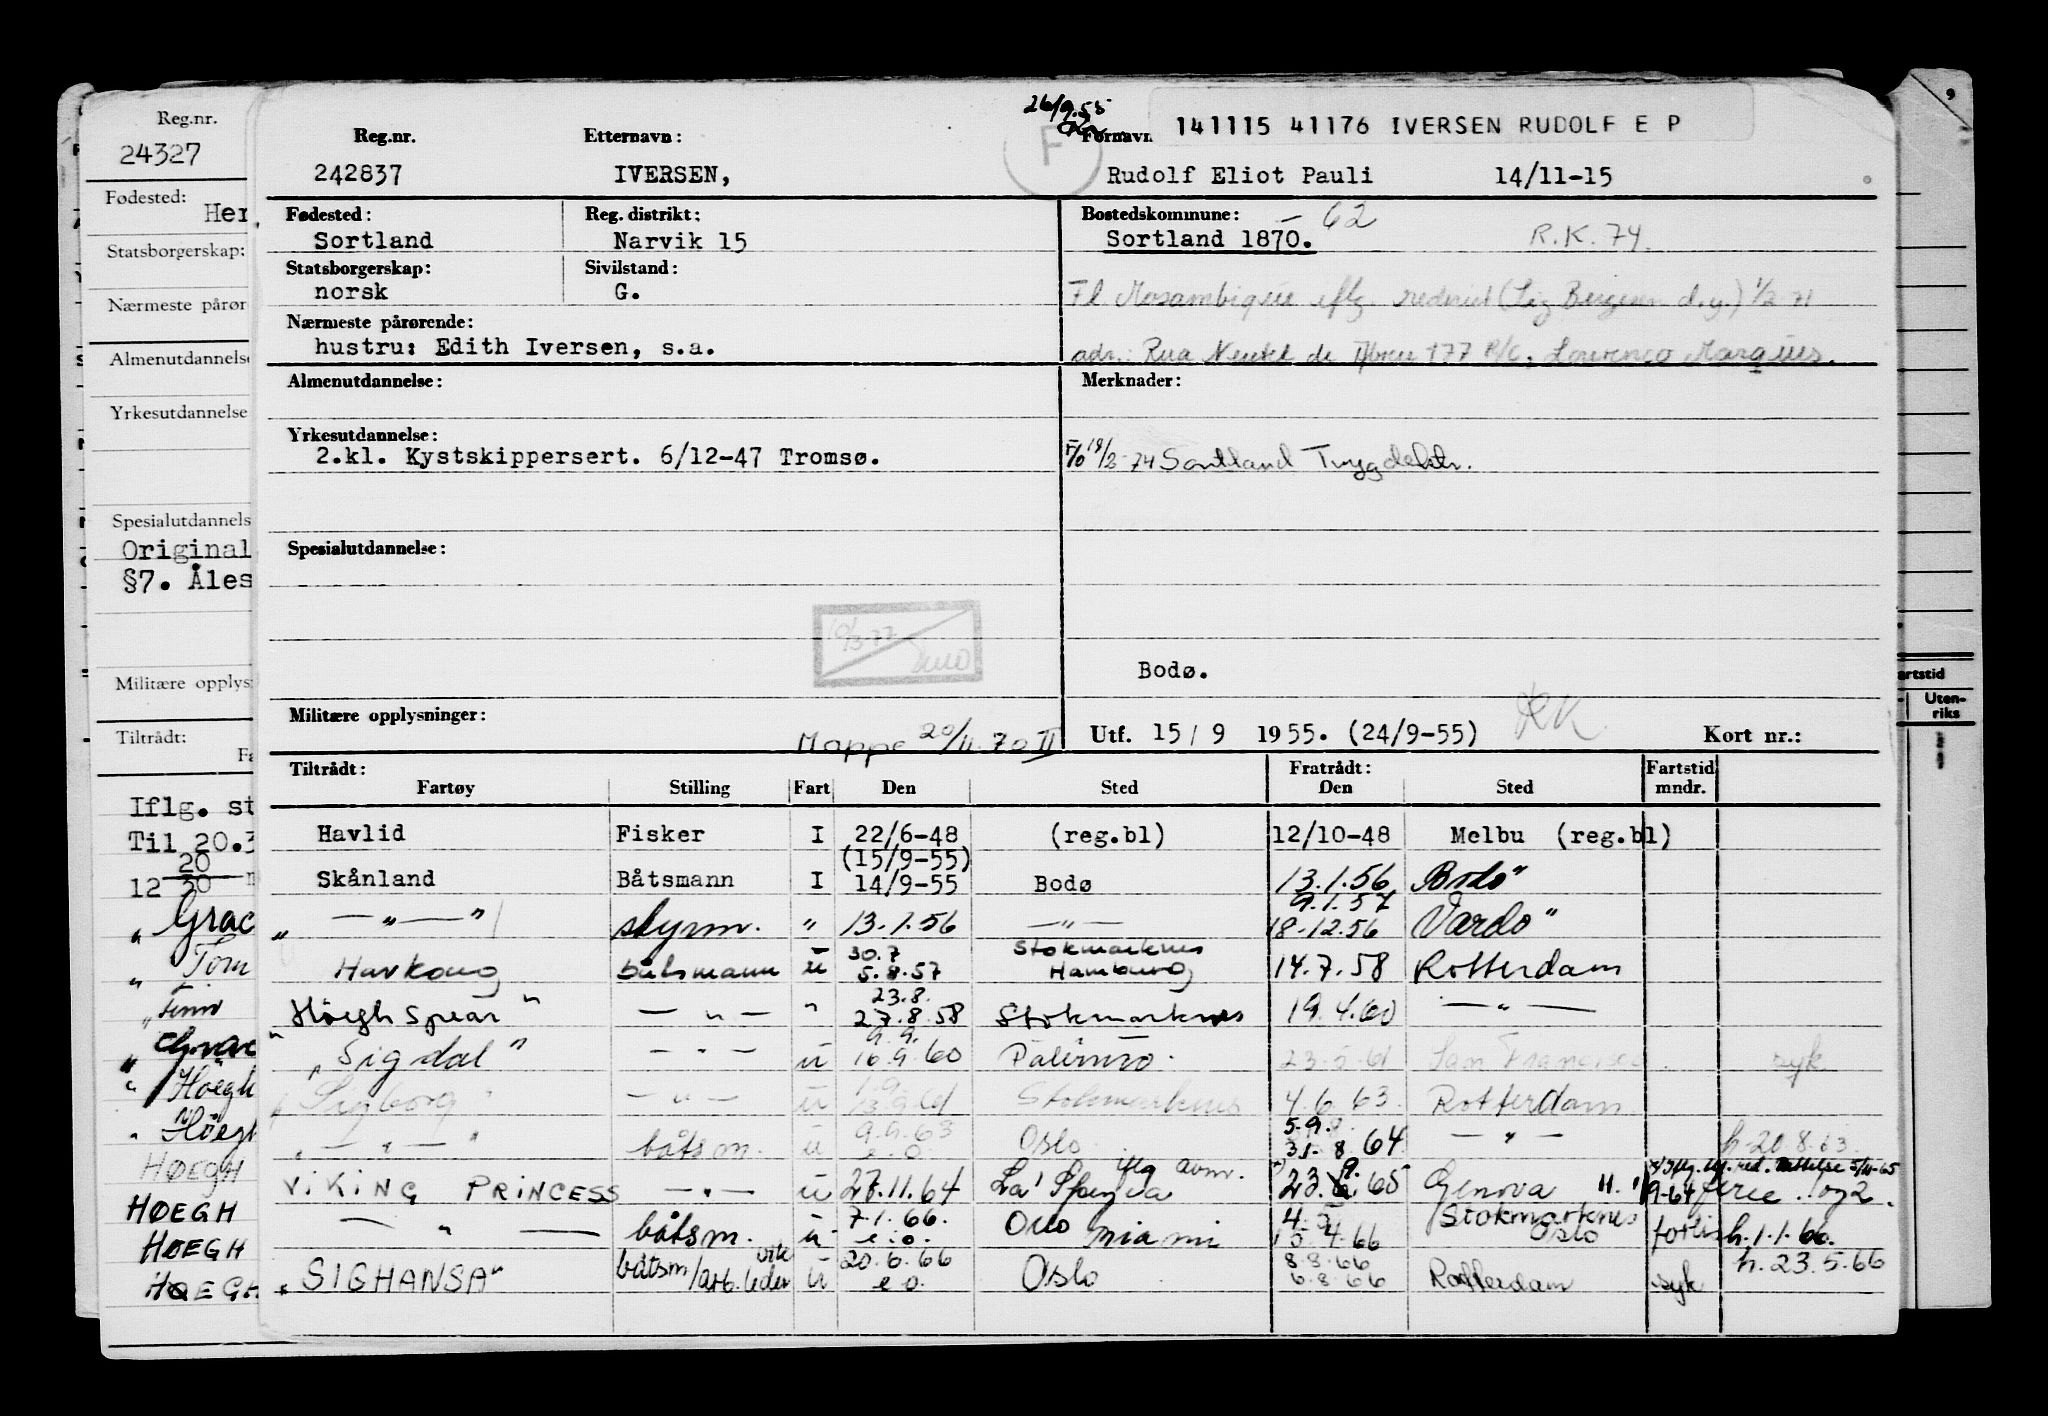 Reg.nr.
24327
Fødested:
Her
Statsborgerskap:
Nærmeste pårør
Almenutdannelse
Yrkesutdannelse
Spesialutdannels
Original
§7. Åles
Militære opplys
Tiltrådt:
Iflg. st
Til 20.3
20
12 30
„ Grac
„ Tom
Høegh
Høegh
HØEGH
HØEGH
HØEGH
HØEGH
26/9.55
F
141115 41176 IVERSEN RUDOLF E P
Reg.nr. Etternavn: Fornavn
242837 IVERSEN, Rudolf Eliot Pauli 14/11-15
Fødested: Reg. distrikt: Bostedskommune: 62
Sortland Narvik 15 Sortland 1870. R.K. 74.
Statsborgerskap: Sivilstand:
norsk G. Fl Mosambique iflg. rederiet (Sig Bergesen d.y.) 1/2 71
Nærmeste pårørende:
hustru: Edith Iversen, s.a. adr.: Rua de Abreu 177 R/C, Lourenco Marques.
Almenutdannelse: Merknader:
Yrkesutdannelse:
2.kl. Kystskippersert. 6/12-47 Tromsø. F/o 18/2-74 Sortland Trygdektr.
Spesialutdannelse:
10/3-77
Bodø.
Militære opplysninger: Mappe 20/11.70 II Utf. 15/9 1955. (24/9-55) RK Kort nr.:
Tiltrådt: Fratrådt: Fartstid
Fartøy Stilling Fart Den Sted Den Sted mndr.
Havlid Fisker I 22/6-48 (reg.bl) 12/10-48 Melbu (reg.bl)
(15/9-55)
Skånland Båtsmann I 14/9-55 Bodø 13.1.56 Bodø"
9.1.57
„ — „ — " styrm. " 13.1.56 — „ — 18-12.56 Vardø"
30.7 Stokmarknes
Havkong båtsmann u 5.8.57 Hamburg 14.7.58 Rotterdam
23.8.
"Høegh Spear" — „ — " 27.8.58 Stokmarknes 19.4.60 — „ —
9.9.
"Sigdal" — „ — u 16.9.60 Palermo. 23.5.61 San Francisco syk
1.9.
"Sigborg" — „ — u 13.9.61 Stokmarknes 4.6.63. Rotterdam
9.9.63 5.9.
„ — „ — " båtsm. u e.o. Oslo. 31.8 64. — „ — h. 20.8.63
iflg avm. 9.
VIKING PRINCESS — „ — u 27.11.64 La Spezia 23. 65 Genova 9-64 ferie
7.1.66. 4.5 Stokmarknes
— „ — båtsm. u e.o. Oslo Miami 4.66 Oslo forlis h. 1.1.66.
vik 20.6.66 8.8.66 h. 23.5.66
"SIGHANSA" båtsm/arb.leder u e.o. Oslo 6.8.66 Rotterdam syk
artstid
Uten-
riks
9